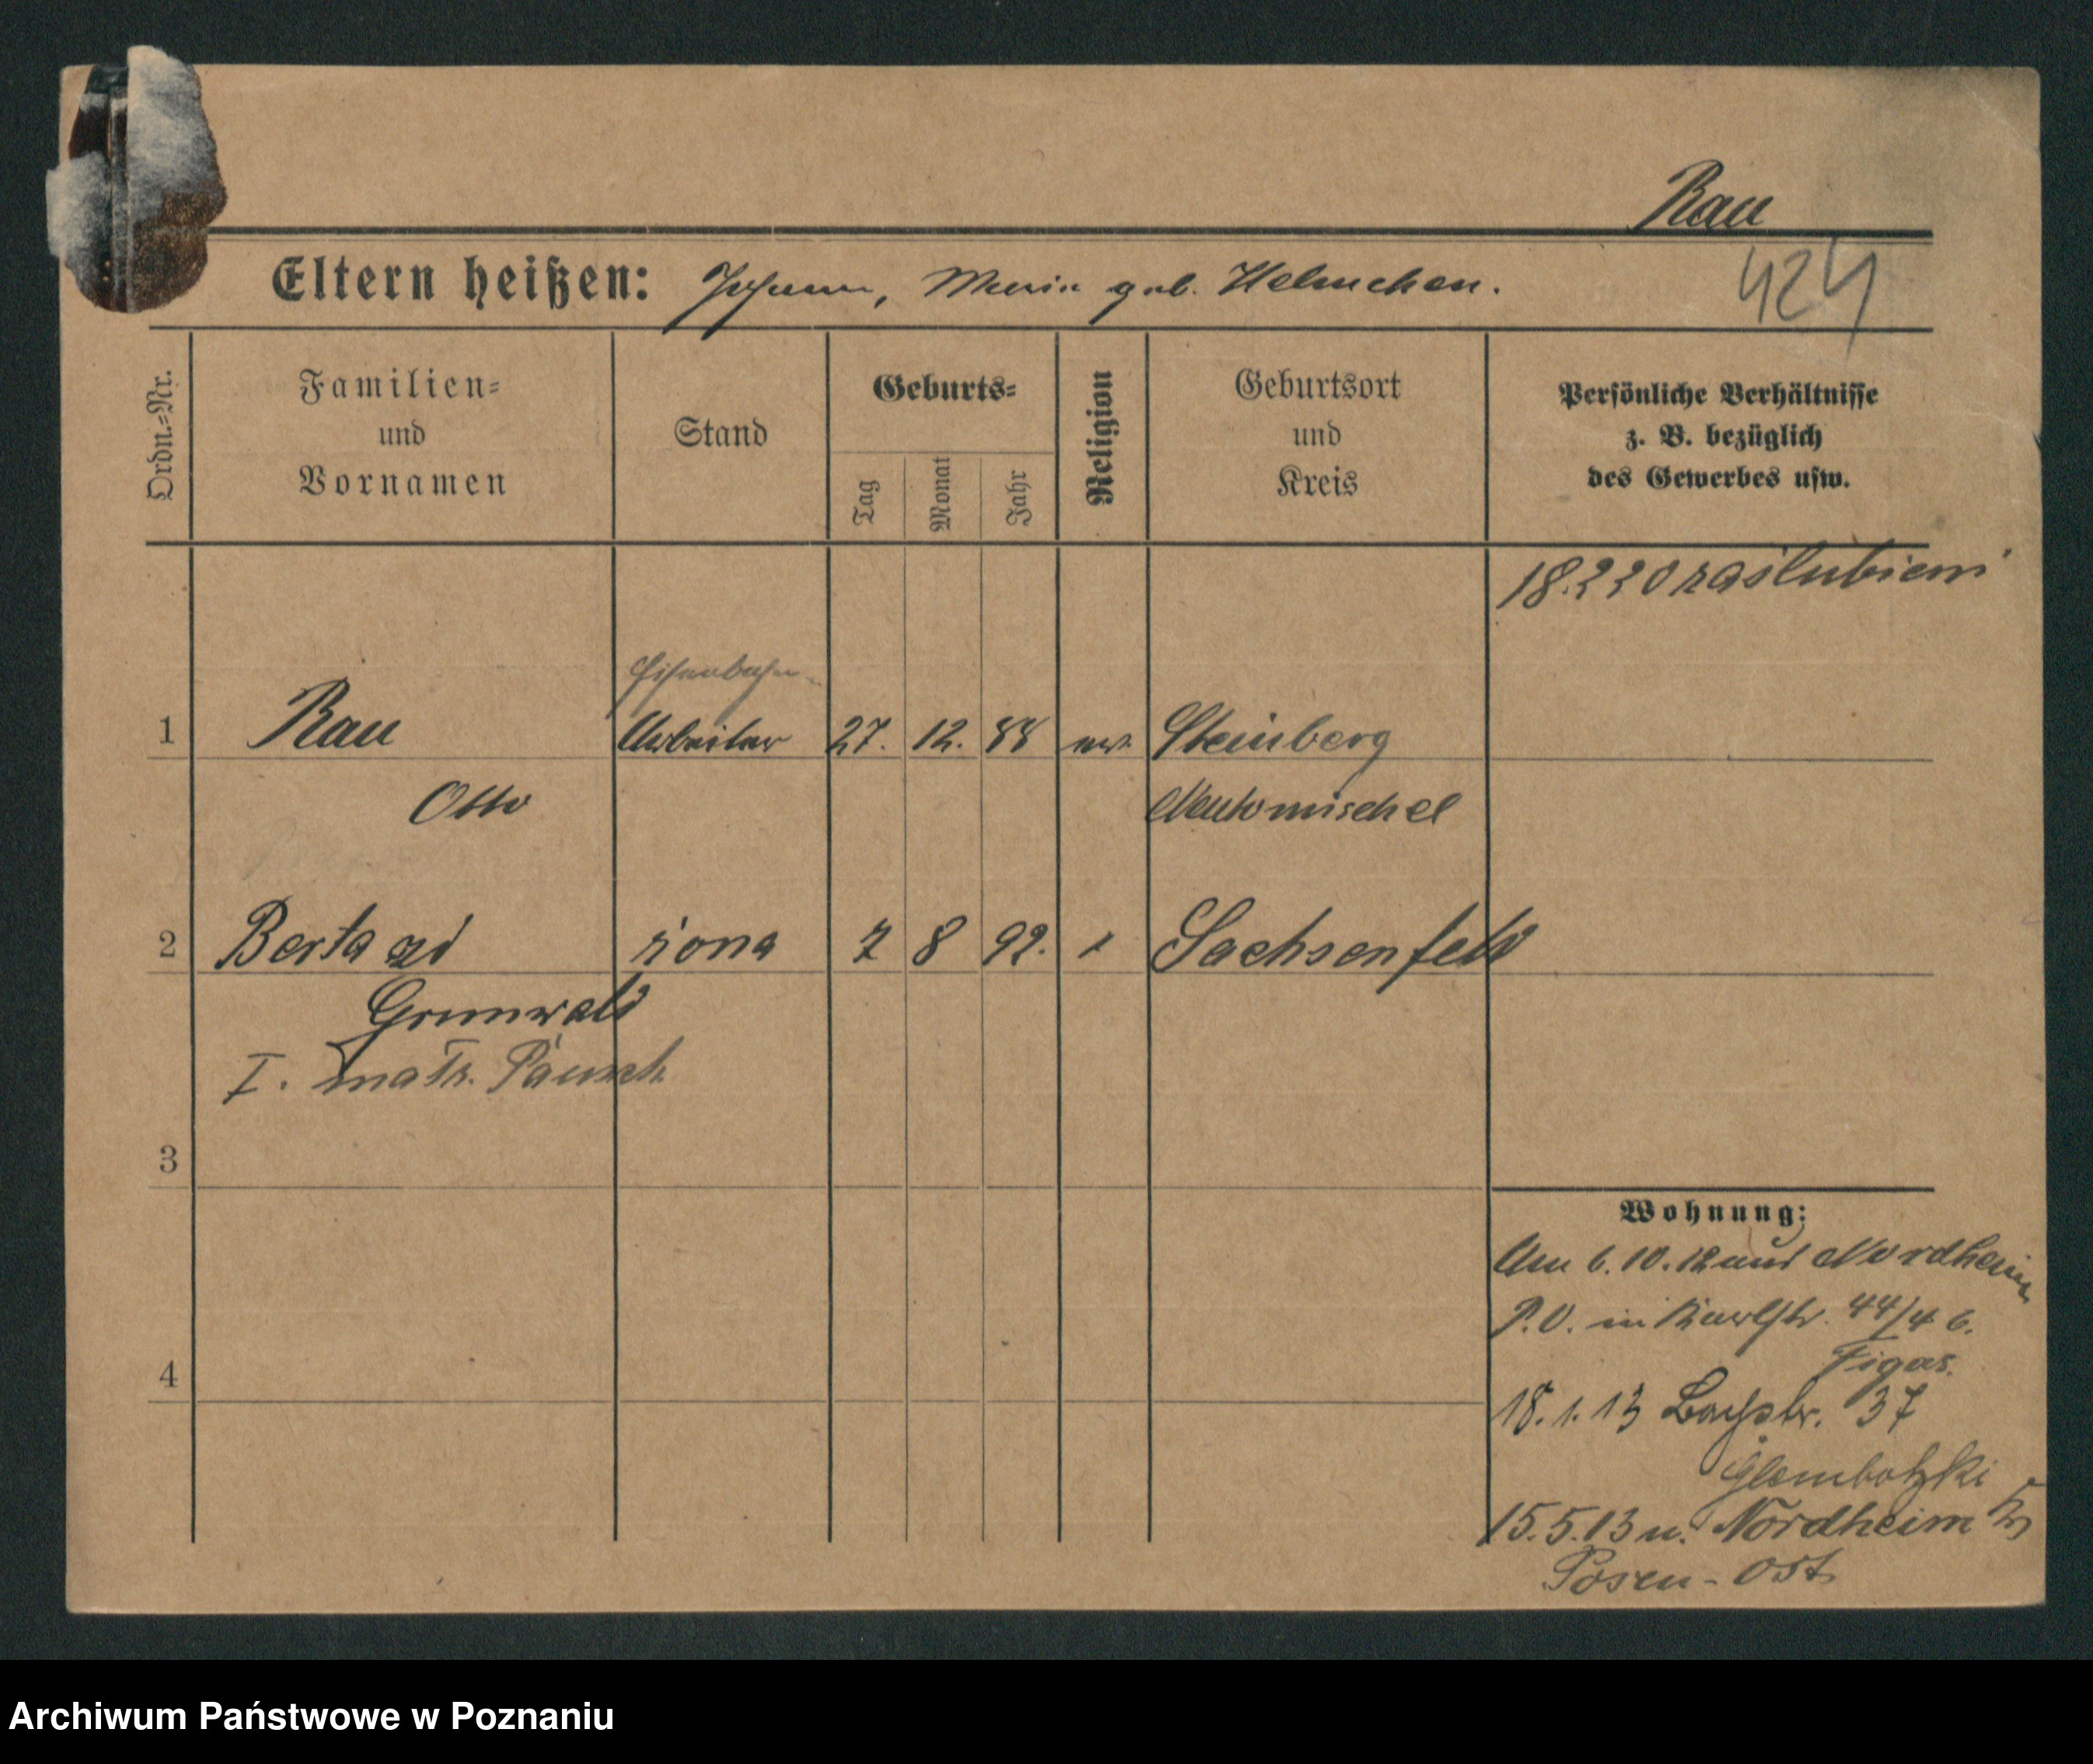 Rau
Eltern heißen: Johann, Maria geb. Helmchen.
424
Ordn.-Nr.
Familien-
und
Vornamen
Stand
Geburts-
Tag
Monat
Jahr
Religion
Geburtsort
und
Kreis
Persönliche Verhältnisse
z. B. bezüglich
des Gewerbes usw.
18.2 20 zaślubieni
Eisenbahn-
1 Rau Arbeiter 27. 12. 88 ev. Steinberg
Otto Neutomischel
2 Berta zd żona 7 8 92. Sachsenfeld
Grunwald
I.
3
Wohnung:
Am 6.10.12 aus Nordheim
P.O. in Karlstr. 44/4 b.
Figas.
4
18.1.13 37
Glembotzki
15.5.13 n. Nordheim
Posen-Ost
Archiwum Państwowe w Poznaniu